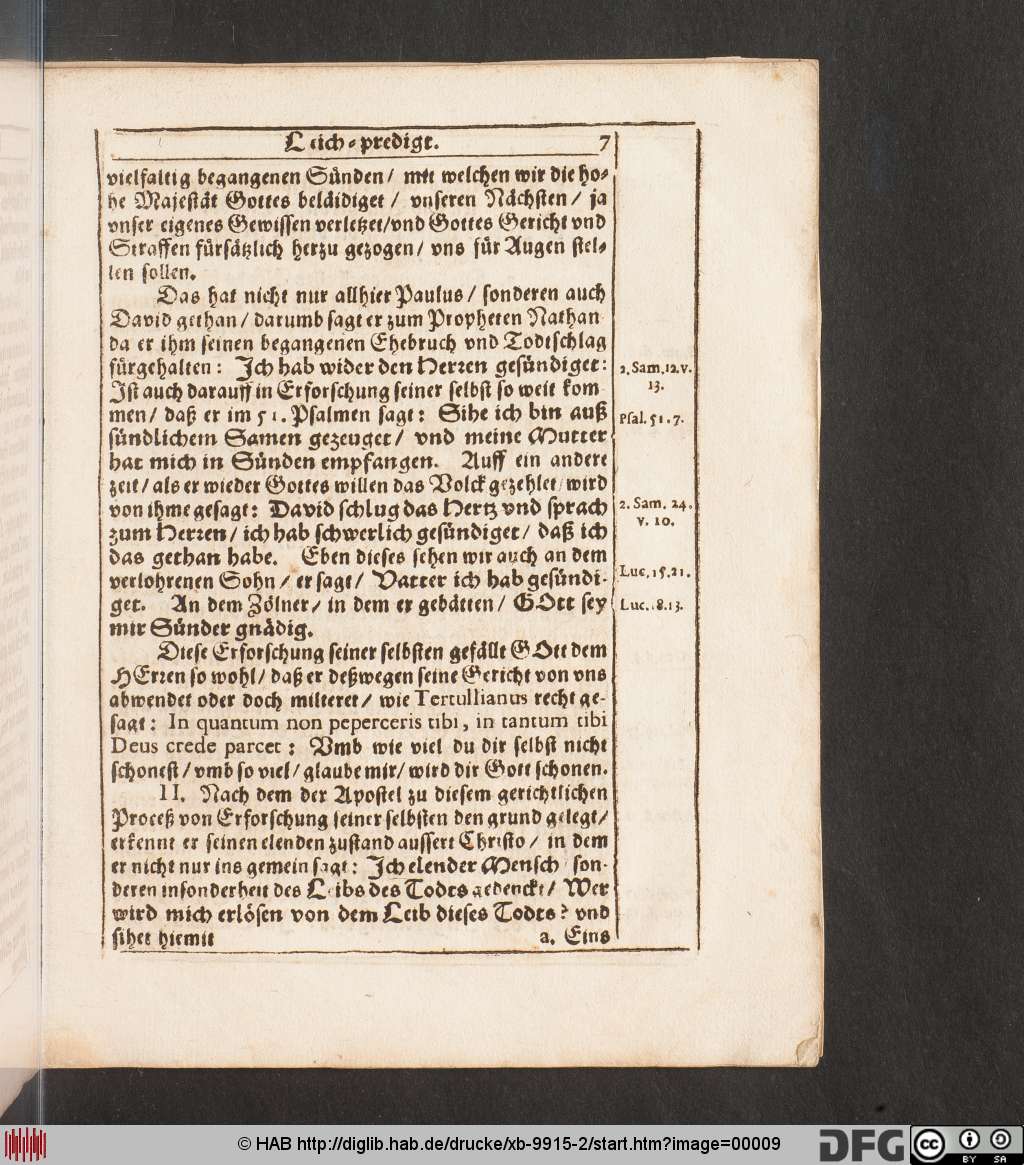 Leich-predigt. 7
vielfaltig begangenen Sünden/ mit welchen wir die ho-
he Majestät Gottes beläidiget/ vnseren Nächsten/ ja
vnser eigenes Gewissen verletzet/vnd Gottes Gericht vnd
Straffen fürsätzlich herzu gezogen/ vns für Augen stel-
len sollen.
Das hat nicht nur allhier Paulus/ sonderen auch
David gethan/ darumb sagt er zum Propheten Nathan
da er ihm seinen begangenen Ehebruch vnd Todtschlag
fürgehalten: Jch hab wider den Herren gesündiget:
Jst auch darauff in Erforschung seiner selbst so weit kom
men/ daß er im 51. Psalmen sagt: Sihe ich bin auß
sündlichem Samen gezeuget/ vnd meine Mutter
hat mich in Sünden empfangen. Auff ein andere
zeit/ als er wieder Gottes willen das Volck gezehlet/ wird
von ihme gesagt: David schlug das Hertz vnd sprach
zum Herren/ ich hab schwerlich gesündiget/ daß ich
das gethan habe. Eben dieses sehen wir auch an dem
verlohrenen Sohn/ er sagt/ Vatter ich hab gesündi-
get. An dem Zölner/ in dem er gebätten/ GOtt sey
mir Sünder gnädig.
Diese Erforschung seiner selbsten gefällt GOtt dem
HErren so wohl/ daß er deßwegen seine Gericht von vns
abwendet oder doch milteret/ wie Tertullianus recht ge-
sagt: In quantum non peperceris tibi, in tantum tibi
Deus crede parcet: Vmb wie viel du dir selbst nicht
schonest/ vmb so viel/ glaube mir/ wird dir Gott schonen.
II. Nach dem der Apostel zu diesem gerichtlichen
Proceß von Erforschung seiner selbsten den grund gelegt/
erkennt er seinen elenden zustand aussert Christo/ in dem
er nicht nur ins gemein sagt: Jch elender Mensch/ son-
deren insonderheit des Leibs des Todts gedenckt/ Wer
wird mich erlösen von dem Leib dieses Todts? vnd
sihet hiemit a. Eins
2. Sam. 12. v.
13.
Psal. 51. 7.
2. Sam. 24.
v. 10.
Luc. 15. 21.
Luc. 18. 13.
© HAB http://diglib.hab.de/drucke/xb-9915-2/start.htm?image=00009
DFG
cc BY SA